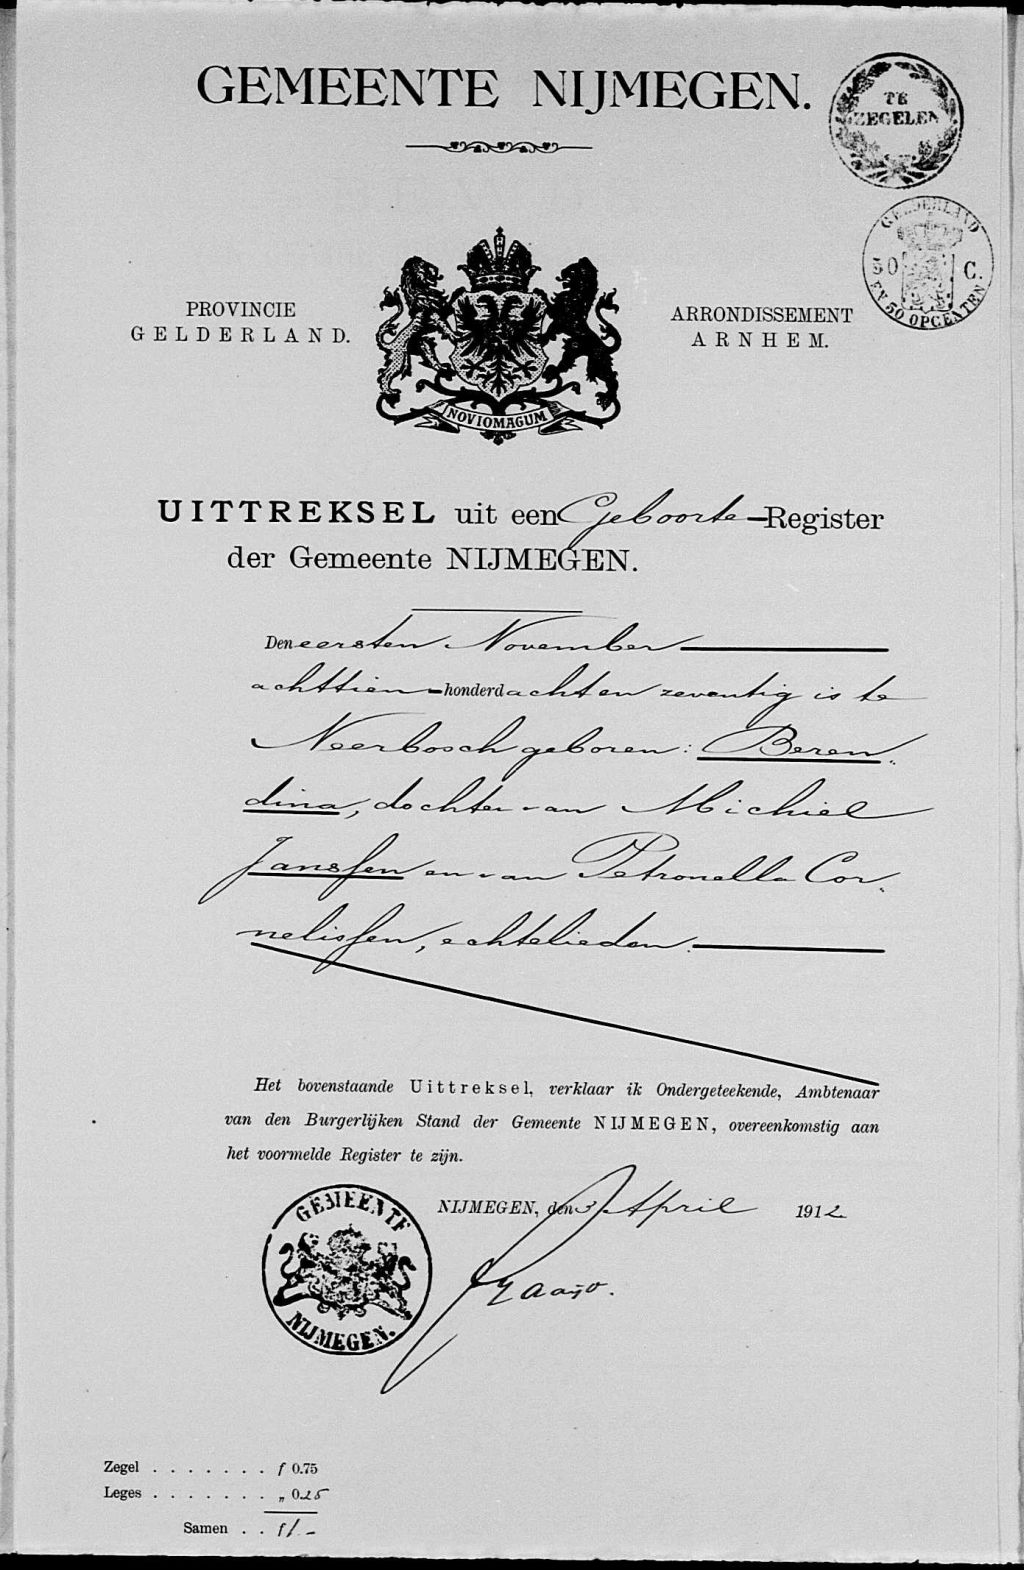 GEMEENTE NIJMEGEN.
TE
ZEGELEN
GELDERLAND
50 C.
EN 50 OPCENTEN
PROVINCIE
GELDERLAND.
ARRONDISSEMENT
ARNHEM.
NOVIOMAGUM
UITTREKSEL uit een Geboorte-Register
der Gemeente NIJMEGEN.
Den eersten November
achttien-honderd acht en zeventig is te
Neerbosch geboren: Beren„
dina, dochter van Michiel
Janssen en van Petronella Cor„
nelissen, echtelieden.
Het bovenstaande Uittreksel, verklaar ik Ondergeteekende, Ambtenaar
van den Burgerlijken Stand der Gemeente NIJMEGEN, overeenkomstig aan
het voormelde Register te zijn.
NIJMEGEN, den 3 April 1912
GEMEENTE
NIJMEGEN.
Zegel . . . . . . . f 0.75
Leges . . . . . . . „ 0.25
Samen . . f 1.-